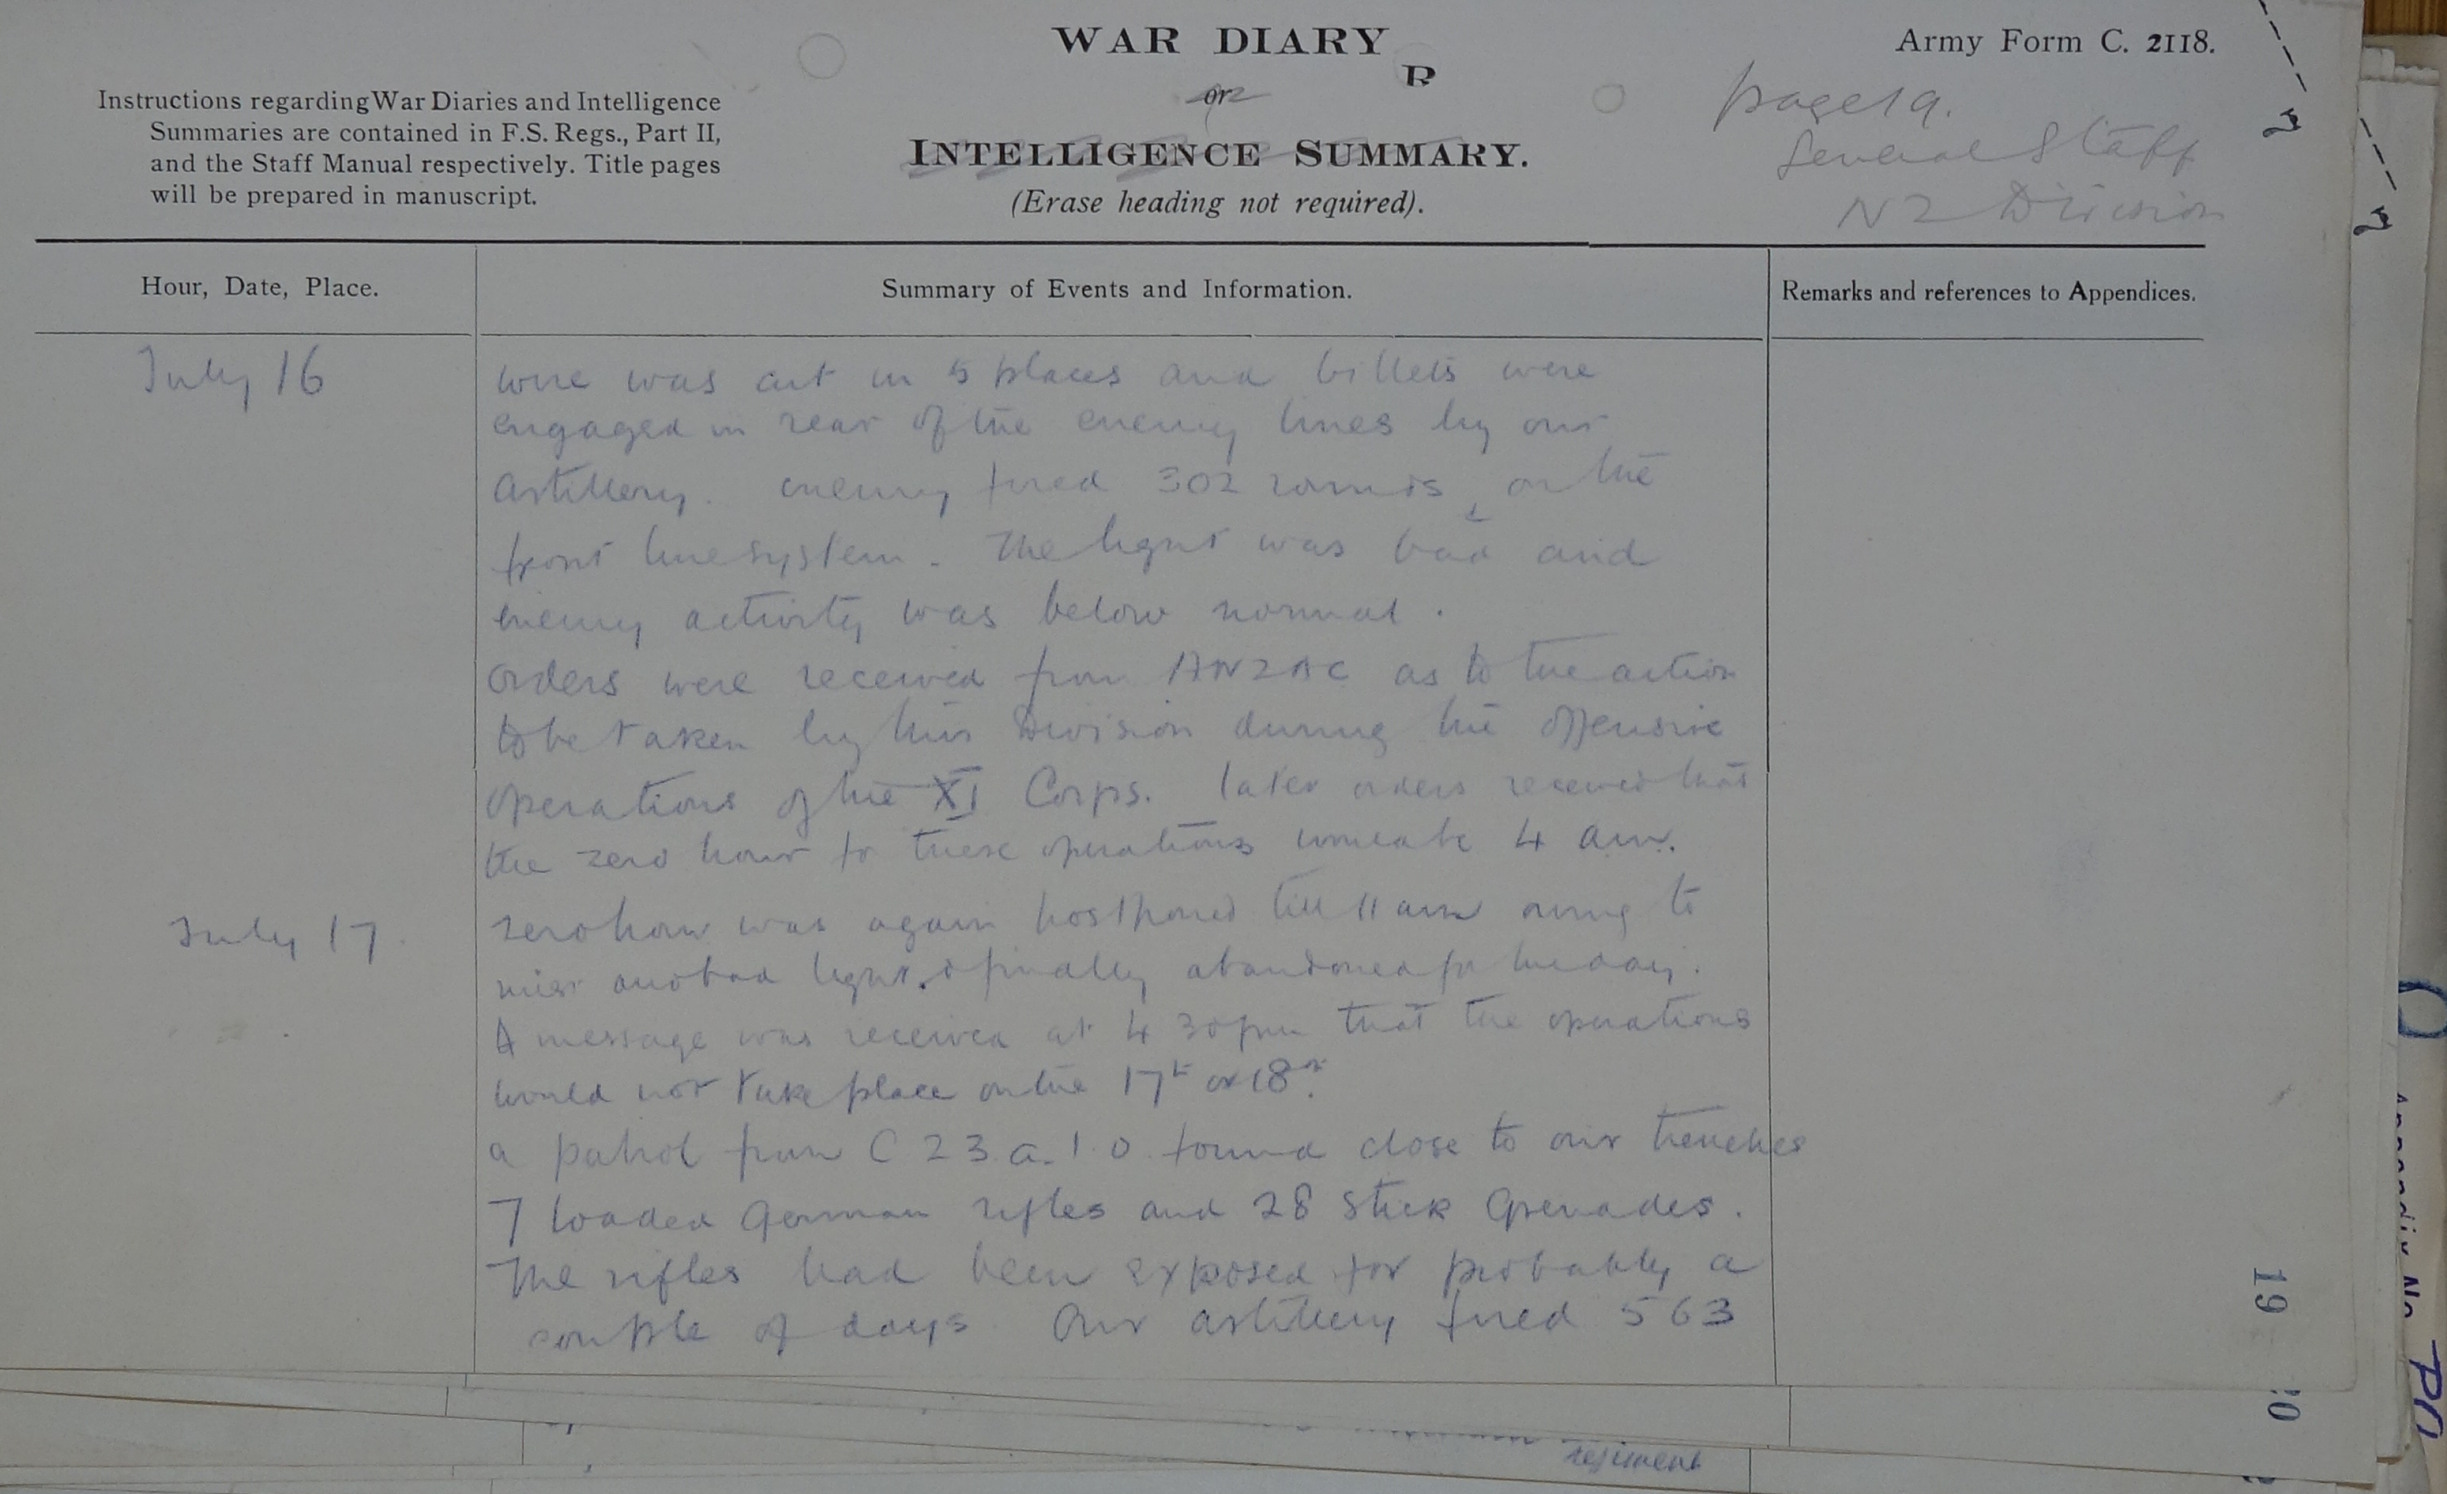 WAR DIARY
Army Form C. 2118.
B
or
page 19.
Instructions regarding War Diaries and Intelligence
Summaries are contained in F.S. Regs., Part II,
and the Staff Manual respectively. Title pages
will be prepared in manuscript.
INTELLIGENCE SUMMARY.
(Erase heading not required).
General Staff
NZ Division
Hour, Date, Place.
Summary of Events and Information.
Remarks and references to Appendices.
July 16
wire was cut in 5 places and billets were
engaged in rear of the enemy lines by our
artillery. enemy fired 302 rounds on the
front line system. The light was bad and
enemy activity was below normal.
orders were received from ANZAC as to the action
to be taken by this Division during the offensive
operations of the XI Corps. later orders received that
the zero hour for these operations would be 4 am.
July 17.
zero hour was again postponed till 11 am owing to
mist and bad light & finally abandoned for the day.
A message was received at 4 30 pm that the operations
would not take place on the 17th or 18th.
a patrol from C 23.a.1.0. found close to our trenches
7 loaded German rifles and 28 stick Grenades.
The rifles had been exposed for probably a
couple of days. Our artillery fired 563
19
regiment